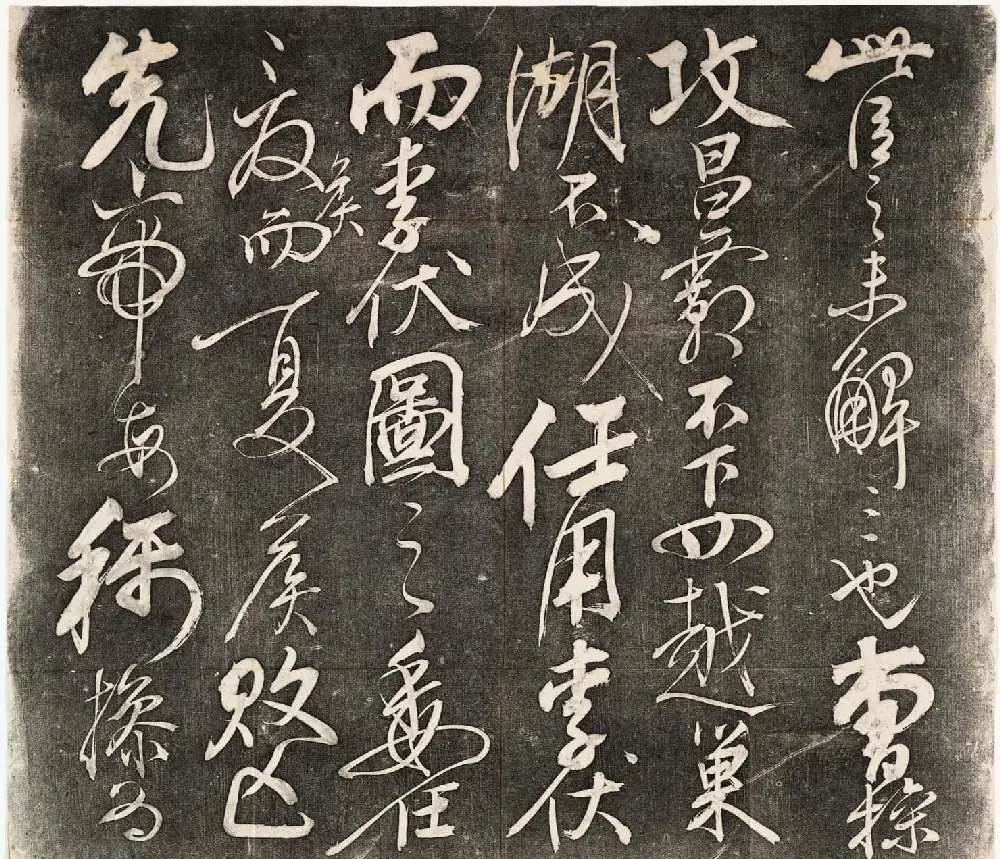 此臣之未解三也曹操
攻昌霸不下四越巢
湖不成任用李伏
而李伏圖之委任
夏侯而夏侯敗亡
先帝每稱操為